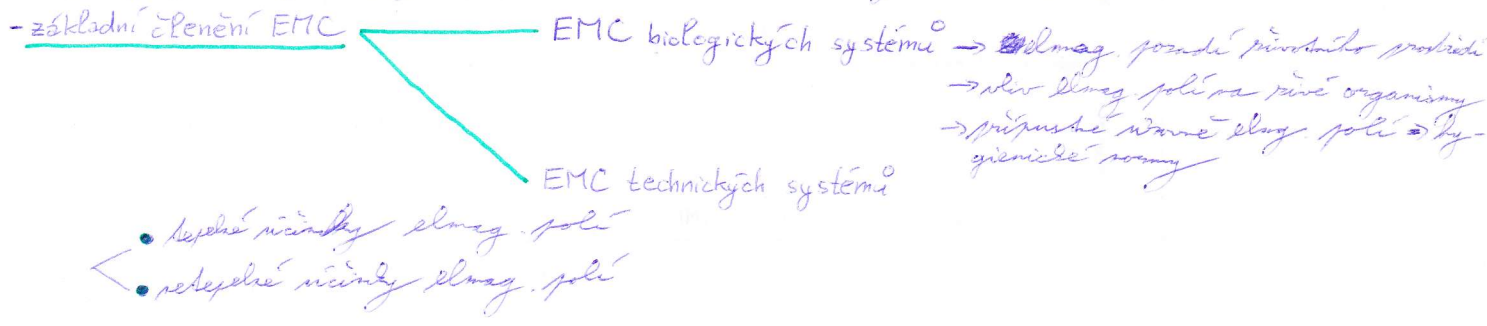 - základní členění EMC
EMC biologických systémů
→ elmag. pozadí životního prostředí
→ vliv elmag. polí na živé organismy
→ přípustné úrovně elmag. polí ⇒ hy-
gienické normy
EMC technických systémů
• tepelné účinky elmag. polí
• netepelné účinky elmag. polí